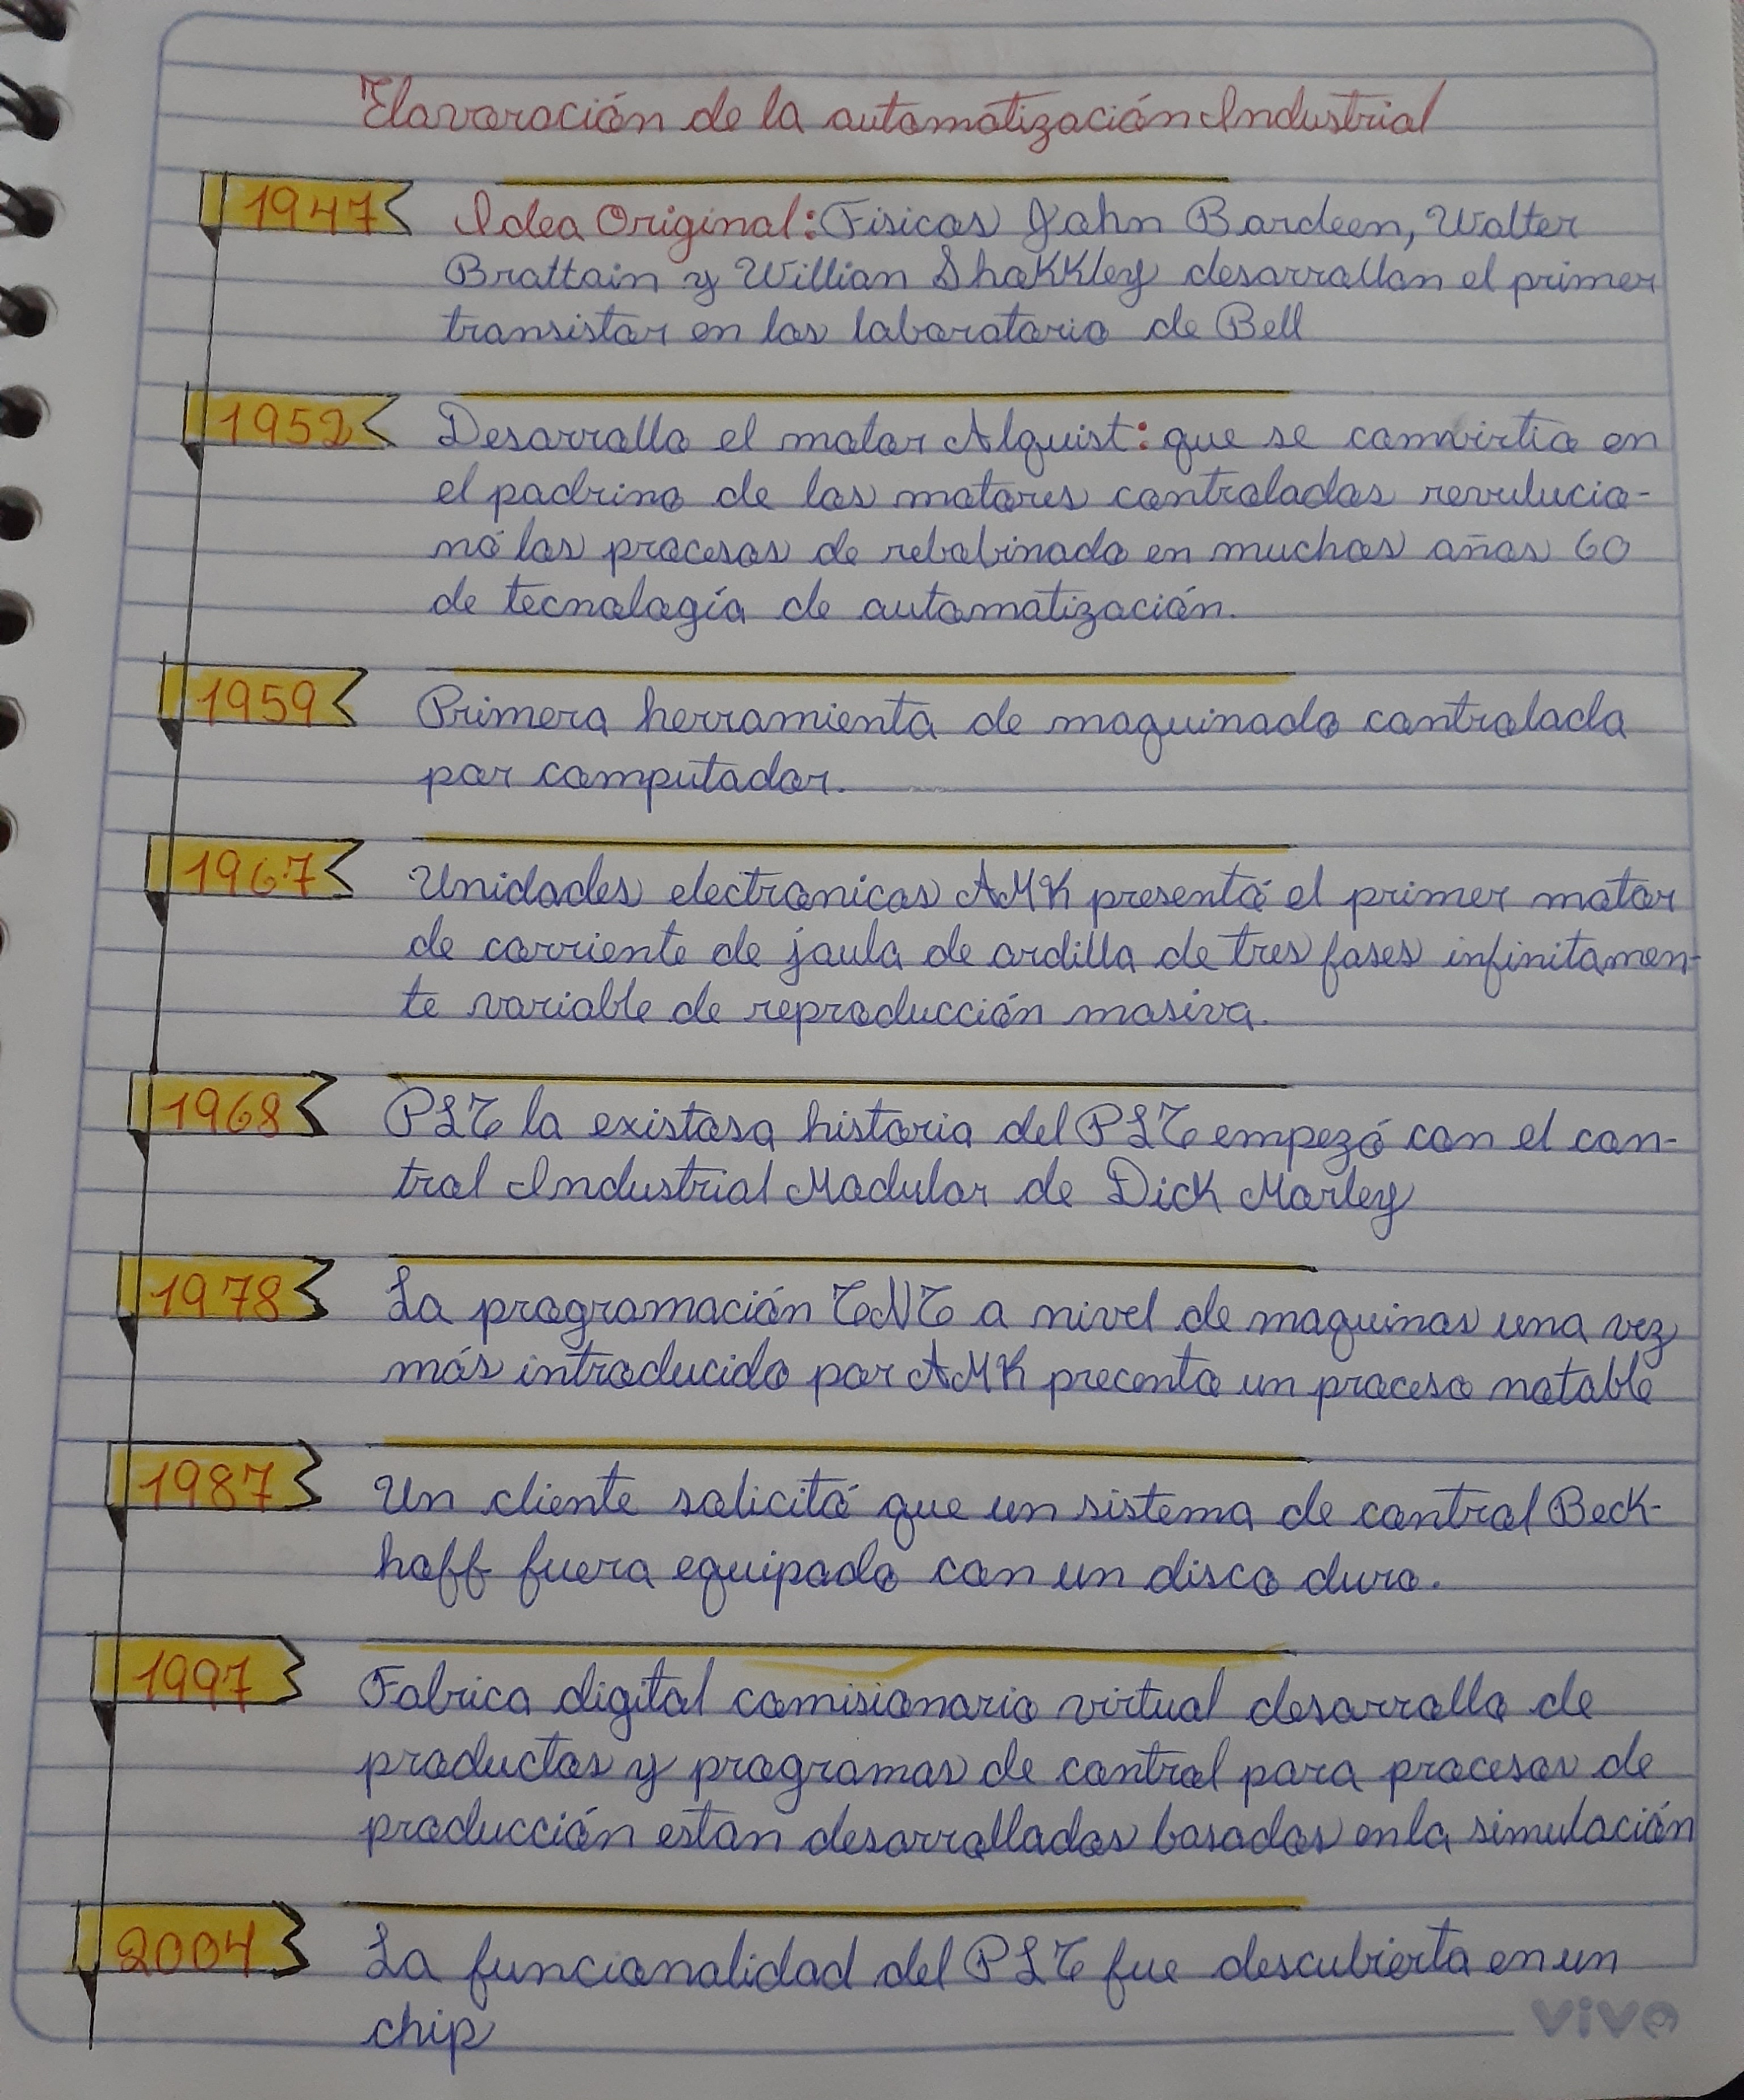 Elavoración de la automatización Industrial
1947
Idea Original: Fisicos John Bardeen, Walter
Brattain y Willian Shakkley desarrollan el primer
transistor en los laboratorio de Bell
1952
Desarrollo el motor Alquist: que se comvirtio en
el padrino de los motores controlados revulucio-
nó los procesos de rebobinado en muchos años 60
de tecnología de automatización.
1959
Primera herramienta de maquinado controlada
por computador.
1967
Unidades electronicas AMK presentó el primer motor
de corriente de jaula de ardilla de tres fases infinitamen-
te variable de reproducción masiva.
1968
PLC la existosa historia del PLC empezó con el con-
trol Industrial Modular de Dick Morley
1978
La programación CNC a nivel de maquinas una vez
más introducido por AMK precenta un proceso notable
1987
Un cliente solicitó que un sistema de control Beck-
hoff fuera equipado con un disco duro.
1997
Fabrica digital comisionario virtual desarrollo de
productos y programas de control para procesos de
producción estan desarrollados basados en la simulación
2004
La funcionalidad del PLC fue descubierta en un
chip
vivo